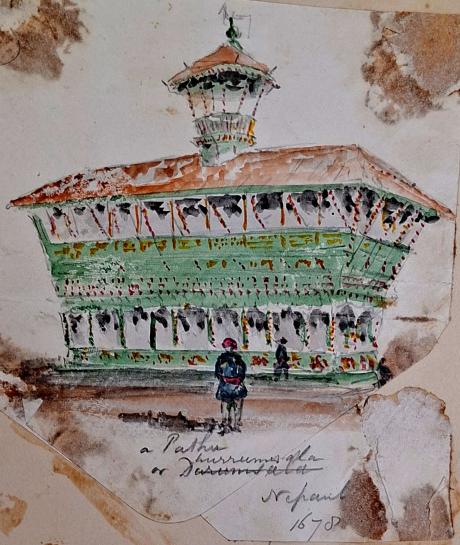 a Pathu
hurrumsala
or Darumsala
Nepaul
1678